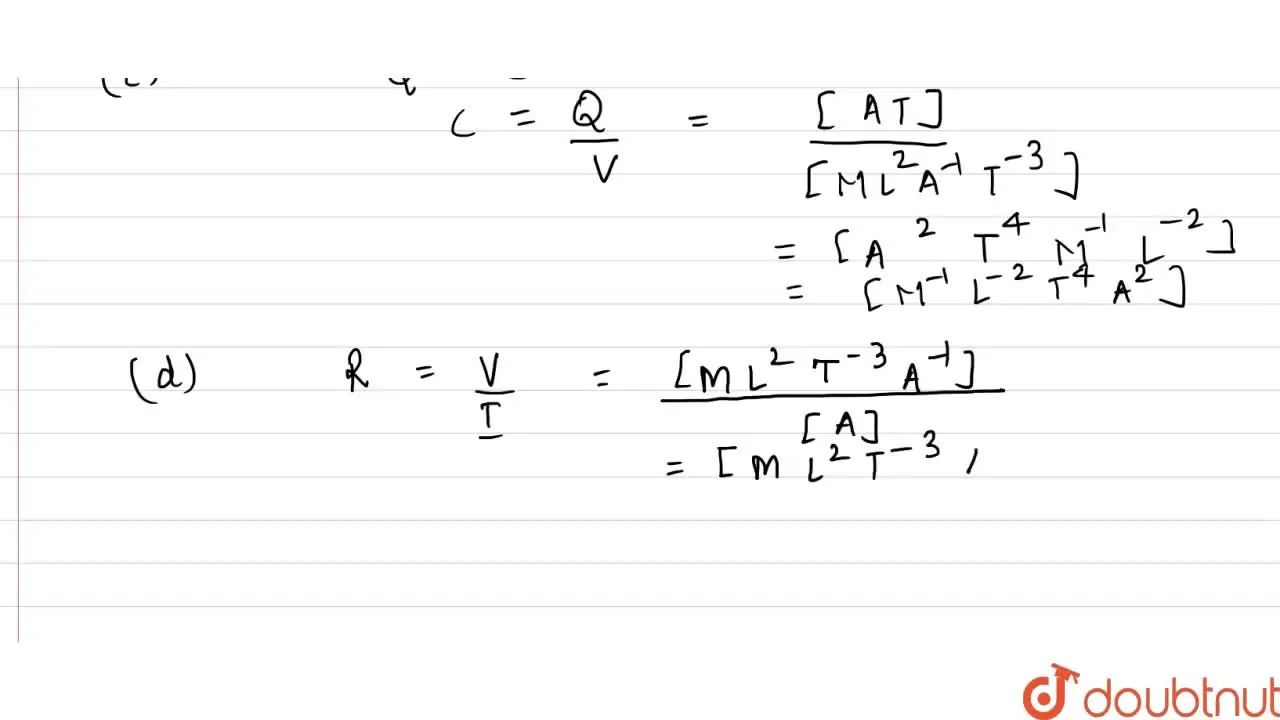 C = Q/V = [AT]/[M L² A⁻¹ T⁻³]
= [A² T⁴ M⁻¹ L⁻²]
= [M⁻¹ L⁻² T⁴ A²]
(d) R = V/I = [M L² T⁻³ A⁻¹]/[A]
= [M L² T⁻³
doubtnut